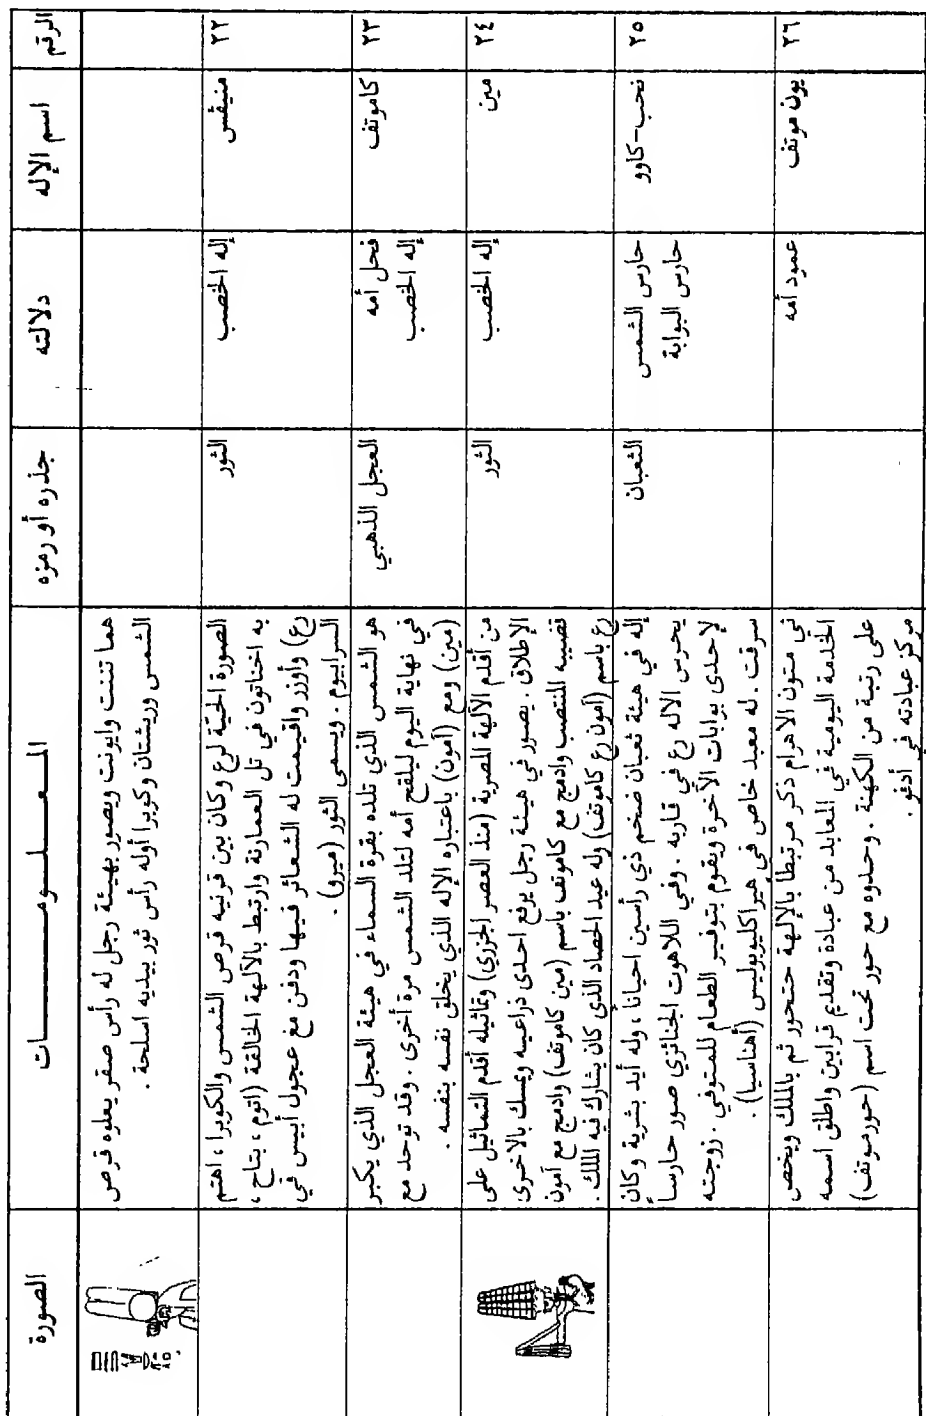 الرقم
اسم الإله
دلالته
جذره أو رمزه
المعلومات
الصورة
هما تننت وايونت ويصور بهيئة رجل له رأس صقر يعلوه قرص
الشمس وريشتان وكوبرا أوله رأس ثور بيديه اسلحة .
٢٢
منيفس
إله الخصب
الثور
الصورة الحية لرع وكان بين قرنيه قرص الشمس والكوبرا ، اهتم
به اخناتون في تل العمارنة وارتبط بالآلهة الخالقة (اتوم ، بتاح ،
رع) وأوزر واقيمت له الشعائر فيها ودفن مع عجول أبيس في
السرابيوم . ويسمى الثور (ميرو) .
٢٣
كاموتف
فحل أمه
إله الخصب
العجل الذهبي
هو الشمس الذي تلده بقرة السماء في هيئة العجل الذي يكبر
في نهاية اليوم ليلقح أمه لتلد الشمس مرة أخرى . وقد توحد مع
(مين) ومع (آمون) باعتباره الإله الذي يخلق نفسه بنفسه .
٢٤
مين
إله الخصب
الثور
من أقدم الآلهة المصرية (منذ العصر الجزري) وتماثيله أقدم التماثيل على
الإطلاق . يصور في هيئة رجل يرفع احدى ذراعيه ويمسك بالاخرى
قضيبه المنتصب وادمج مع كاموتف باسم (مين كاموتف) وادمج مع آمون
رع باسم (آمون رع كاموتف) وله عيد الحصاد الذي كان يشارك فيه الملك .
٢٥
نحب-كاوو
حارس الشمس
حارس البوابة
الثعبان
إله في هيئة ثعبان ضخم ذي رأسين احياناً ، وله أيد بشرية وكان
يحرس الاله رع في قاربه . وفي اللاهوت الجنائزي صور حارساً
لإحدى بوابات الآخرة ويقوم بتوفير الطعام للمتوفي . زوجته
سرقت . له معبد خاص في هيراكليوبوليس (أهناسيا) .
٢٦
يون موتف
عمود أمه
في متون الاهرام ذكر مرتبطا بالإلهة حتحور ثم بالملك ويخص
الخدمة اليومية في المعابد من عبادة وتقديم قرابين واطلق اسمه
على رتبة من الكهنة . وحدوه مع حور تحت اسم (حورموتف)
مركز عبادته في أدفو .